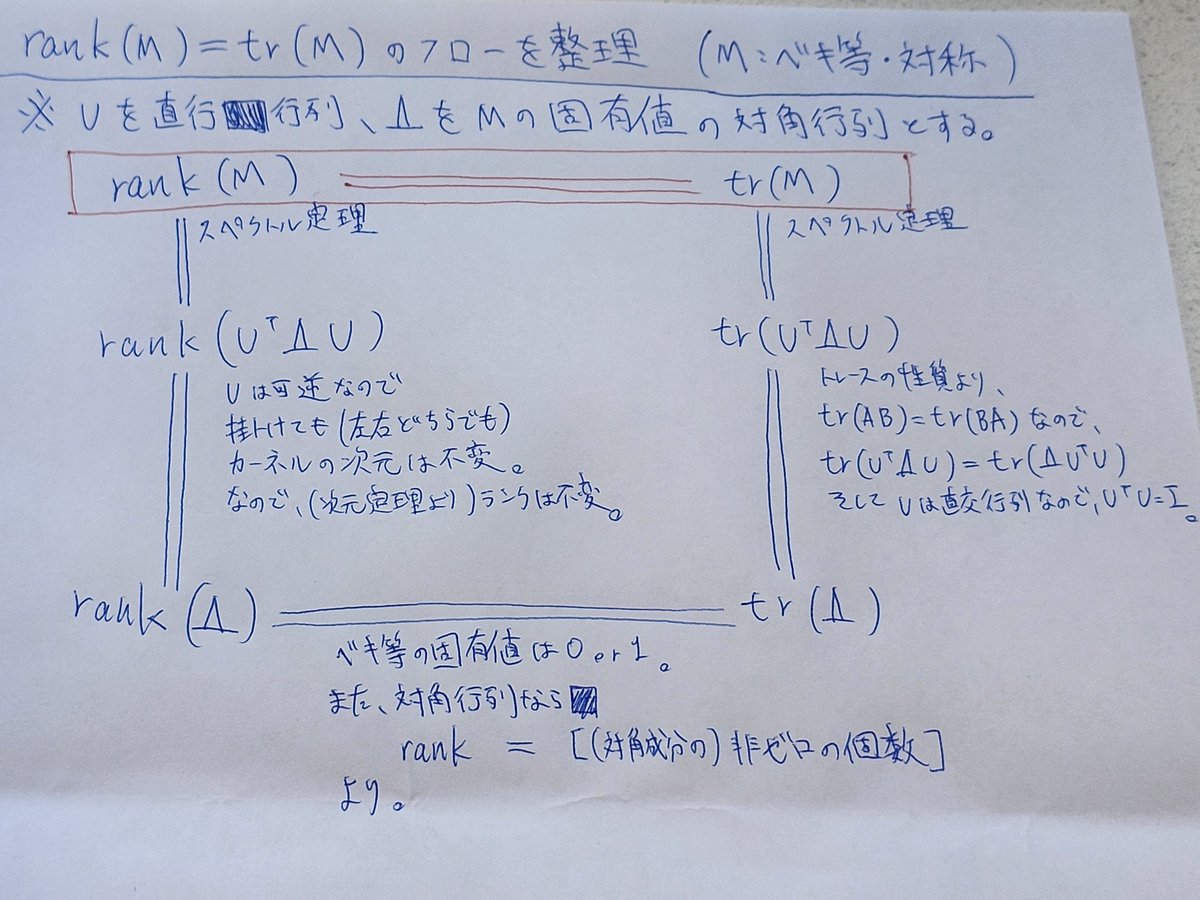 rank(M)=tr(M)のフローを整理 (M:ベキ等・対称)
※ Uを直行行列、ΛをMの固有値の対角行列とする。
rank(M) = tr(M)
スペクトル定理
スペクトル定理
rank(UᵀΛU)
tr(UᵀΛU)
Uは可逆なので
掛けても(左右どちらでも)
カーネルの次元は不変。
なので、(次元定理より)ランクは不変。
トレースの性質より、
tr(AB)=tr(BA)なので、
tr(UᵀΛU)=tr(ΛUᵀU)
そしてUは直交行列なので、UᵀU=I。
rank(Λ) = tr(Λ)
ベキ等の固有値は0 or 1。
また、対角行列なら
rank = [(対角成分の)非ゼロの個数]
より。